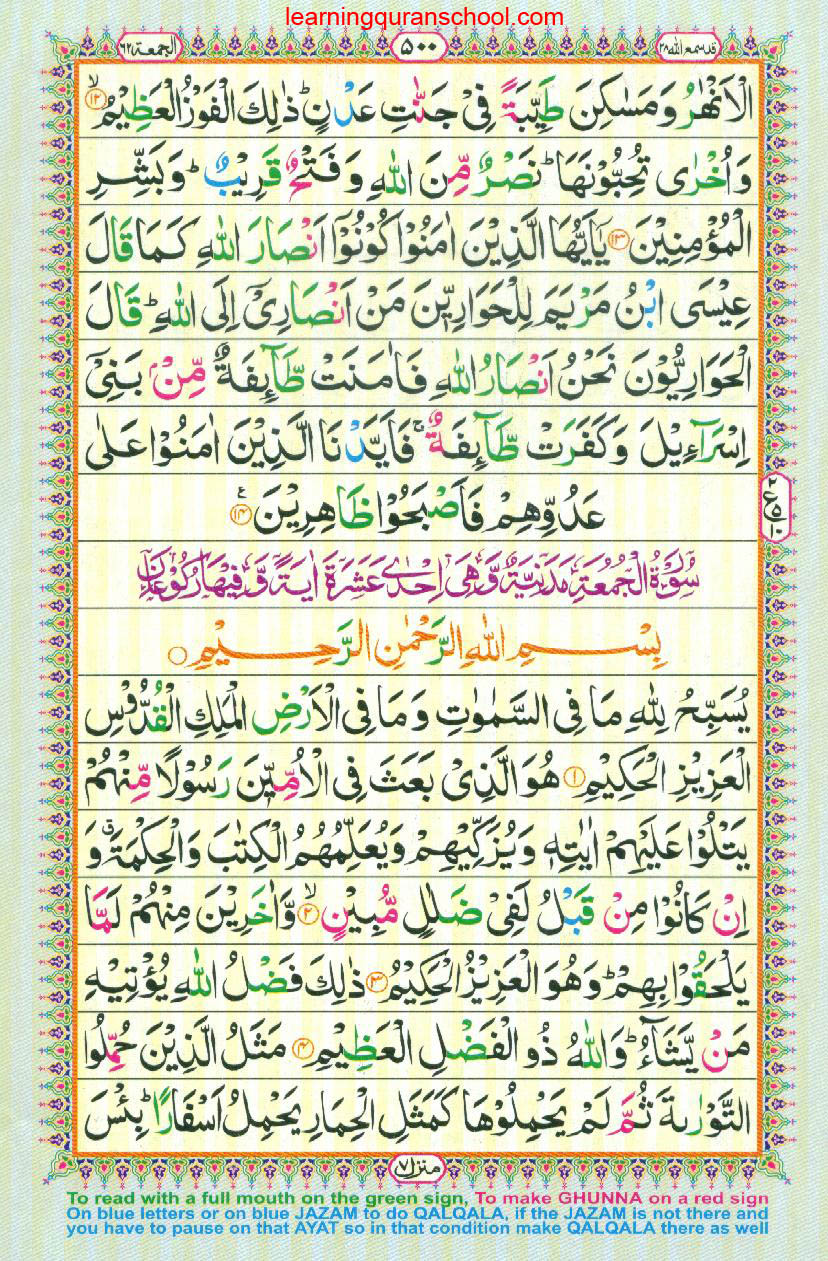 learningquranschool.com
الجمعة ٦٢
٥٠٠
قد سمع الله ٢٨
الْاَنْهٰرُ وَمَسٰكِنَ طَيِّبَةً فِیْ جَنّٰتِ عَدْنٍ ؕ ذٰلِكَ الْفَوْزُ الْعَظِیْمُ ۙ﴿١٢﴾
وَاُخْرٰی تُحِبُّوْنَهَا ؕ نَصْرٌ مِّنَ اللّٰهِ وَفَتْحٌ قَرِیْبٌ ؕ وَبَشِّرِ
الْمُؤْمِنِیْنَ ﴿١٣﴾ یٰۤاَیُّهَا الَّذِیْنَ اٰمَنُوْا كُوْنُوْۤا اَنْصَارَ اللّٰهِ كَمَا قَالَ
عِیْسَی ابْنُ مَرْیَمَ لِلْحَوَارِیّٖنَ مَنْ اَنْصَارِیْۤ اِلَی اللّٰهِ ؕ قَالَ
الْحَوَارِیُّوْنَ نَحْنُ اَنْصَارُ اللّٰهِ فَاٰمَنَتْ طَّآئِفَةٌ مِّنْۢ بَنِیْۤ
اِسْرَآءِیْلَ وَكَفَرَتْ طَّآئِفَةٌ ۚ فَاَیَّدْنَا الَّذِیْنَ اٰمَنُوْا عَلٰی
عَدُوِّهِمْ فَاَصْبَحُوْا ظَاهِرِیْنَ ﴿١٤﴾ ع
٢ ع ٥ ١٠
سُوْرَةُ الْجُمُعَةِ مَدَنِیَّةٌ وَّهِیَ اِحْدٰی عَشَرَةَ اٰیَةً وَّفِیْهَا رُكُوْعَانِ
بِسْمِ اللّٰهِ الرَّحْمٰنِ الرَّحِیْمِ ○
یُسَبِّحُ لِلّٰهِ مَا فِی السَّمٰوٰتِ وَمَا فِی الْاَرْضِ الْمَلِكِ الْقُدُّوْسِ
الْعَزِیْزِ الْحَكِیْمِ ﴿١﴾ هُوَ الَّذِیْ بَعَثَ فِی الْاُمِّیّٖنَ رَسُوْلًا مِّنْهُمْ
یَتْلُوْا عَلَیْهِمْ اٰیٰتِهٖ وَیُزَكِّیْهِمْ وَیُعَلِّمُهُمُ الْكِتٰبَ وَالْحِكْمَةَ ۗ وَ
اِنْ كَانُوْا مِنْ قَبْلُ لَفِیْ ضَلٰلٍ مُّبِیْنٍ ۙ﴿٢﴾ وَّاٰخَرِیْنَ مِنْهُمْ لَمَّا
یَلْحَقُوْا بِهِمْ ؕ وَهُوَ الْعَزِیْزُ الْحَكِیْمُ ﴿٣﴾ ذٰلِكَ فَضْلُ اللّٰهِ یُؤْتِیْهِ
مَنْ یَّشَآءُ ؕ وَاللّٰهُ ذُو الْفَضْلِ الْعَظِیْمِ ﴿٤﴾ مَثَلُ الَّذِیْنَ حُمِّلُوا
التَّوْرٰىةَ ثُمَّ لَمْ یَحْمِلُوْهَا كَمَثَلِ الْحِمَارِ یَحْمِلُ اَسْفَارًا ؕ بِئْسَ
منزل ٧
To read with a full mouth on the green sign, To make GHUNNA on a red sign
On blue letters or on blue JAZAM to do QALQALA, if the JAZAM is not there and
you have to pause on that AYAT so in that condition make QALQALA there as well